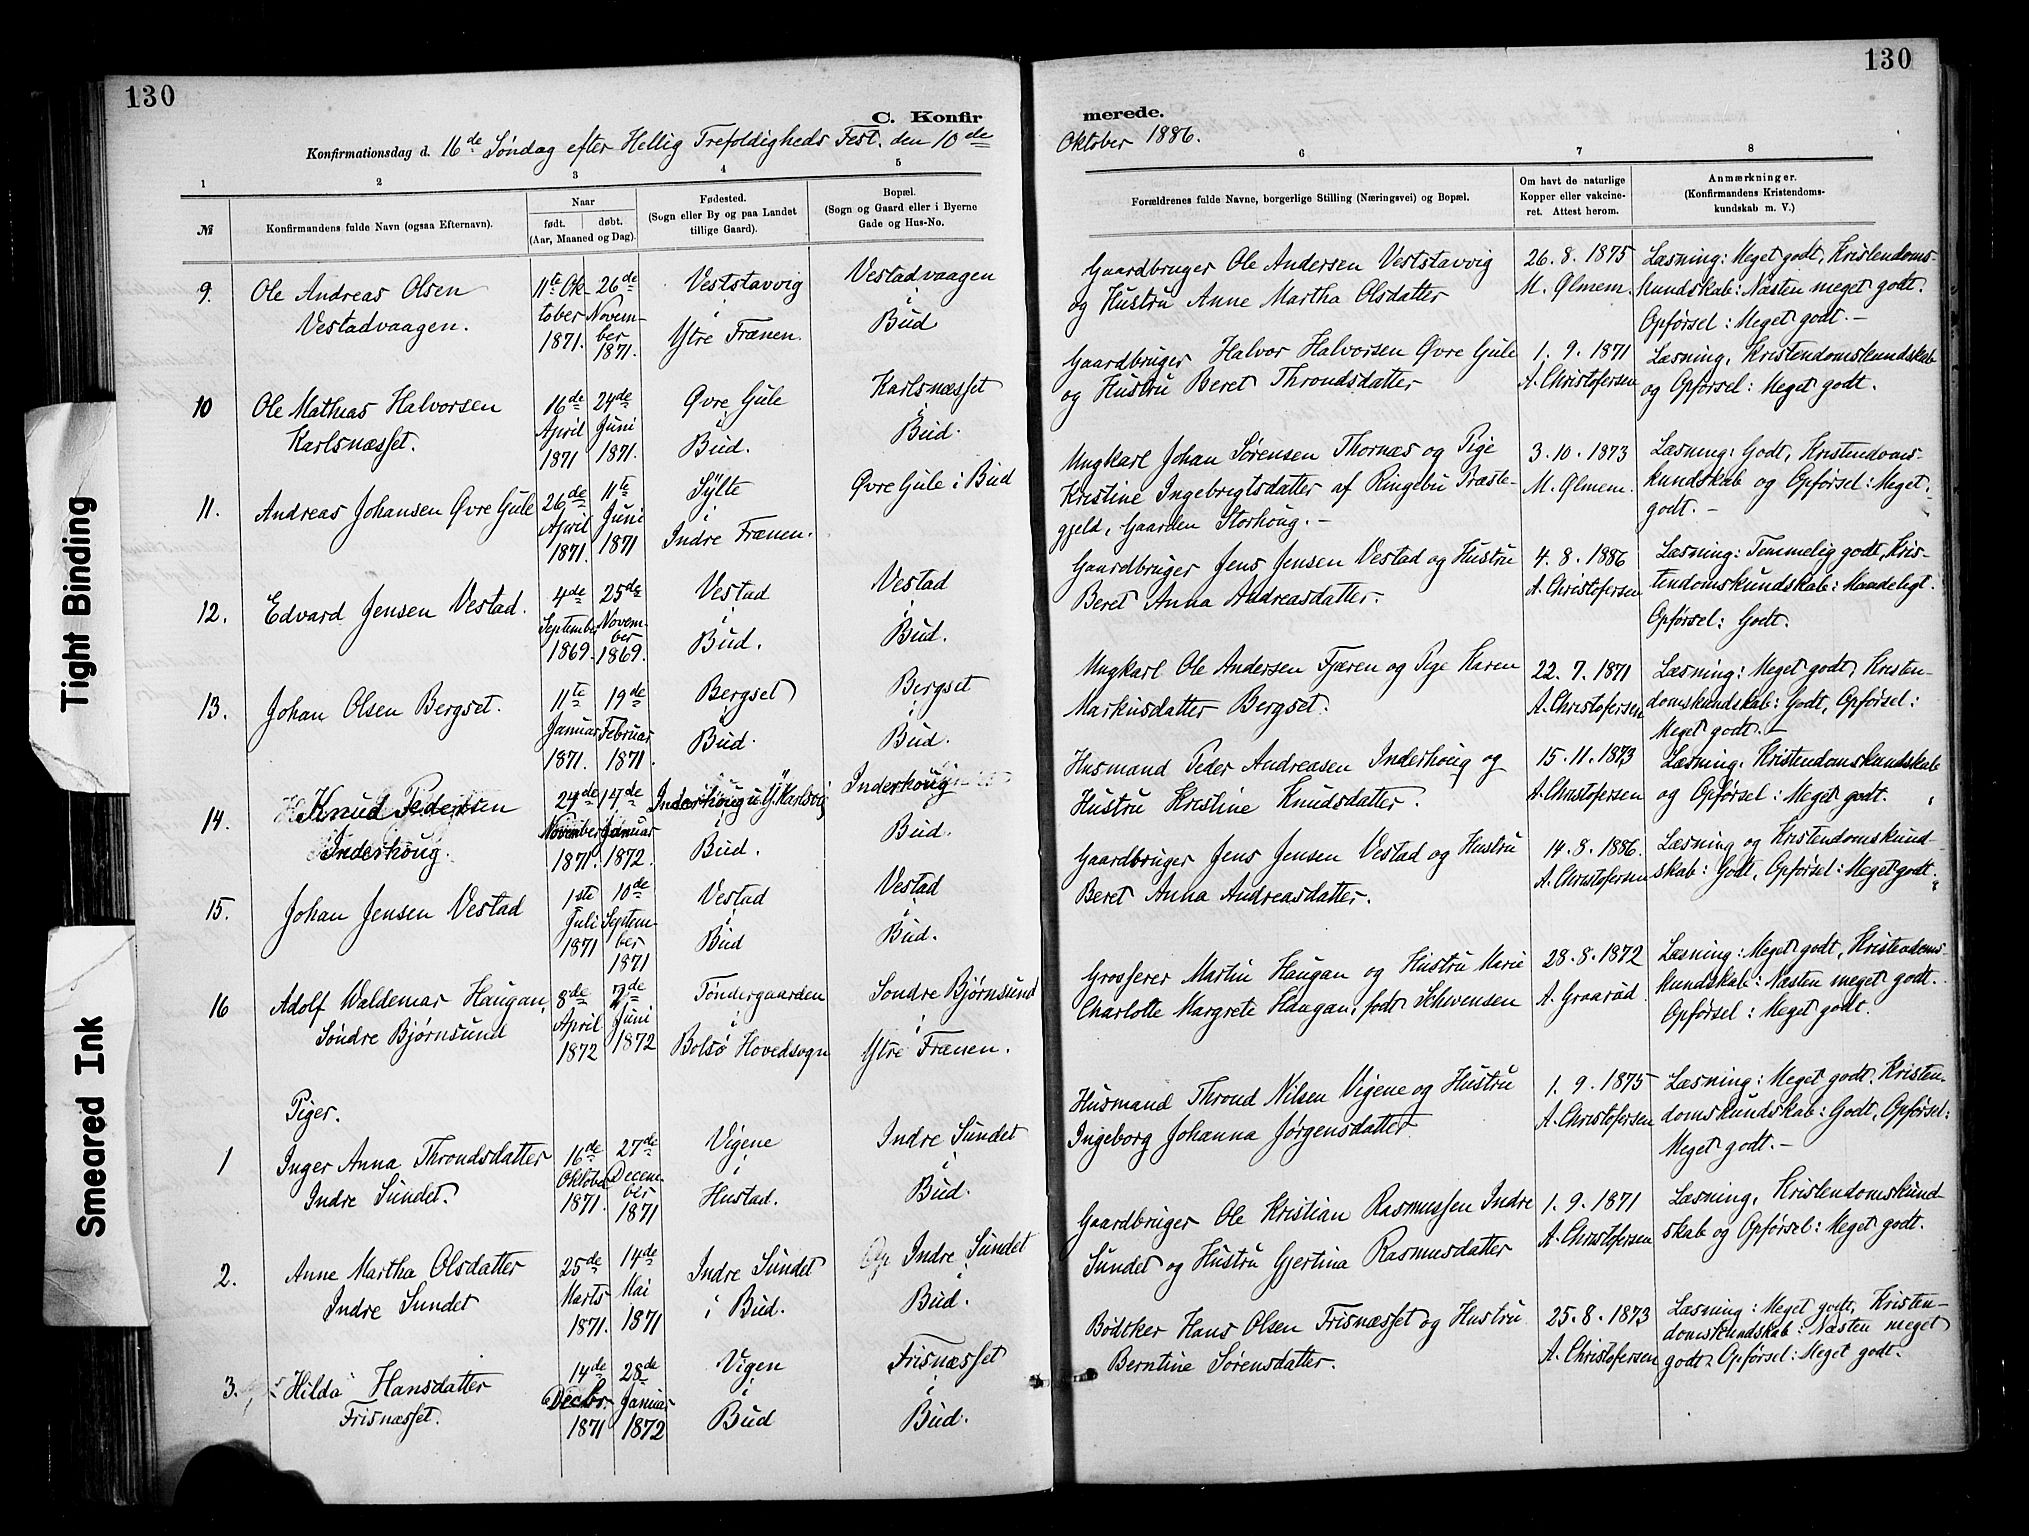 130
130
C. Konfirmerede.
Konfirmationsdag d. 16de Søndag efter Hellig Trefoldigheds Fest. den 10de Oktober 1886.
1 2 3 4 5 6 7 8
№
Konfirmandens fulde Navn (ogsaa Efternavn).
Naar
født. døbt.
(Aar, Maaned og Dag).
Fødested.
(Sogn eller By og paa Landet
tillige Gaard).
Bopæl.
(Sogn og Gaard eller i Byerne
Gade og Hus-No.
Forældrenes fulde Navne, borgerlige Stilling (Næringsvei) og Bopæl.
Om havt de naturlige
Kopper eller vakcine-
ret. Attest herom.
Anmærkninger.
(Konfirmandens Kristendoms-
kundskab m. V.)
9.
Ole Andreas Olsen
Vestadvaagen.
11te Ok-
tober
1871.
26de
Novem-
ber
1871.
Veststavvig
i
Ytre Frænen.
Vestadvaagen
i
Bud
Gaardbruger Ole Andersen Veststavvig
og Hustru Anne Martha Olsdatter
26.8.1875
M. Qlmem.
Læsning: Meget godt, Kristendoms-
kundskab: Næsten meget godt.
Opførsel: Meget godt.-
10
Ole Mathias Halvorsen
Karlsnæsset.
16de
April
1871
24de
Juni
1871.
Øvre Gule
i
Bud.
Karlsnæsset
i
Bud.
Gaardbruger Halvor Halvorsen Øvre Gule
og Hustru Beret Throndsdatter
1.9.1871
A. Christofersen
Læsning, Kristendomskundskab
og Opførsel: Meget godt.
11.
Andreas Johansen Øvre Gule
26de
April
1871.
11te
Juni
1871
Sylte
i
Indre Frænen.
Øvre Gule i Bud
Ungkarl Johan Sørensen Thornæs og Pige
Kristine Ingebrigtsdatter af Ringebu Præste-
gjeld, Gaarden Storhoug.-
3.10.1873
M. Qlmem.
Læsning: Godt, Kristendoms-
kundskab og Opførsel: Meget
godt.-
12.
Edvard Jensen Vestad.
4de
September
1869.
25de
Novem-
ber
1869.
Vestad
i
Bud.
Vestad
i
Bud.
Gaardbruger Jens Jensen Vestad og Hustru
Beret Anna Andreasdatter.
4.8.1886
A. Christofersen
Læsning: Temmelig godt, Kris-
tendomskundskab: Maadeligt.
Opførsel: Godt.
13.
Johan Olsen Bergset.
11te
Januar
1871.
19de
Februar
1871.
Bergset
i
Bud.
Bergset
i
Bud.
Ungkarl Ole Andersen Fjæren og Pige Karen
Markusdatter Bergset.
22.7.1871
A. Christofersen
Læsning: Meget godt, Kristen-
domskundskab: Godt, Opførsel:
Meget godt.-
14.
Knud Pedersen
Inderhoug.
24de
November
1871.
17de
Januar
1872.
Inderhoug u/G. Karlsvig
i
Bud.
Inderhoug
i
Bud.
Husmand Peder Andreasen Inderhoug og
Hustru Kristine Knudsdatter.
15.11.1873
A. Christofersen
Læsning, Kristendomskundskab
og Opførsel: Meget godt.
15.
Johan Jensen Vestad
1ste
Juli
1871
10de
Septem-
ber
1871
Vestad
i
Bud
Vestad
i
Bud.
Gaardbruger Jens Jensen Vestad og Hustru
Beret Anna Andreasdatter.
14.8.1886.
A. Christofersen
Læsning og Kristendomskund-
skab: Godt, Opførsel: Meget godt.
16
Adolf Waldemar Haugan,
Søndre Bjørnsund
8de
April
1872
2de
Juni
1872
Tøndergaarden
i
Bolsø Hovedsogn
Søndre Bjørnsund
i
Ytre Frænen.
Grosserer Martin Haugan og Hustru Marie
Charlotte Margrete Haugan, født Schwensen
28.8.1872
A. Graarud
Læsning: Meget godt, Kristendoms-
kundskab: Næsten meget godt.
Opførsel: Meget godt.
Piger.
1
Inger Anna Throndsdatter
Indre Sundet.
16de
Oktober
1871.
27de
Decem-
ber
1871
Vigene
i
Hustad.
Indre Sundet
i
Bud.
Husmand Thrond Nilsen Vigene og Hustru
Ingeborg Johanna Jørgensdatter
1.9.1875
A. Christofersen
Læsning: Meget godt. Kristen-
domskundskab: Godt, Opførsel:
Meget godt.-
2.
Anne Martha Olsdatter
Indre Sundet
25de
Marts
1871.
14de
Mai
1871
Indre Sundet
i Bud.
Indre Sundet
i
Bud.
Gaardbruger Ole Kristian Rasmussen Indre
Sundet og Hustru Gjertina Rasmusdatter
1.9.1871
A. Christofersen
Læsning, Kristendomskund-
skab og Opførsel: Meget godt.
3.
Hilda Hansdatter
Frisnæsset.
14de
Decbr.
1871
28de
Januar
1872
Vigen
i
Bud
Frisnæsset
i
Bud.
Bødker Hans Olsen Frisnæsset og Hustru
Berntine Sørensdatter.
25.8.1873
A. Christofersen
Læsning: Meget godt, Kristen-
domskundskab: Næsten meget
godt, Opførsel: Meget godt.
Tight Binding
Smeared Ink